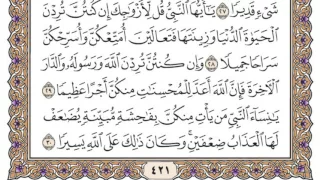 شَىْءٍ قَدِيرًا ٢٧ يَٰٓأَيُّهَا ٱلنَّبِىُّ قُل لِّأَزْوَٰجِكَ إِن كُنتُنَّ تُرِدْنَ
ٱلْحَيَوٰةَ ٱلدُّنْيَا وَزِينَتَهَا فَتَعَالَيْنَ أُمَتِّعْكُنَّ وَأُسَرِّحْكُنَّ
سَرَاحًا جَمِيلًا ٢٨ وَإِن كُنتُنَّ تُرِدْنَ ٱللَّهَ وَرَسُولَهُۥ وَٱلدَّارَ
ٱلْءَاخِرَةَ فَإِنَّ ٱللَّهَ أَعَدَّ لِلْمُحْسِنَٰتِ مِنكُنَّ أَجْرًا عَظِيمًا ٢٩
يَٰنِسَآءَ ٱلنَّبِىِّ مَن يَأْتِ مِنكُنَّ بِفَٰحِشَةٍ مُّبَيِّنَةٍ يُضَٰعَفْ
لَهَا ٱلْعَذَابُ ضِعْفَيْنِ ۚ وَكَانَ ذَٰلِكَ عَلَى ٱللَّهِ يَسِيرًا ٣٠
٤٢١